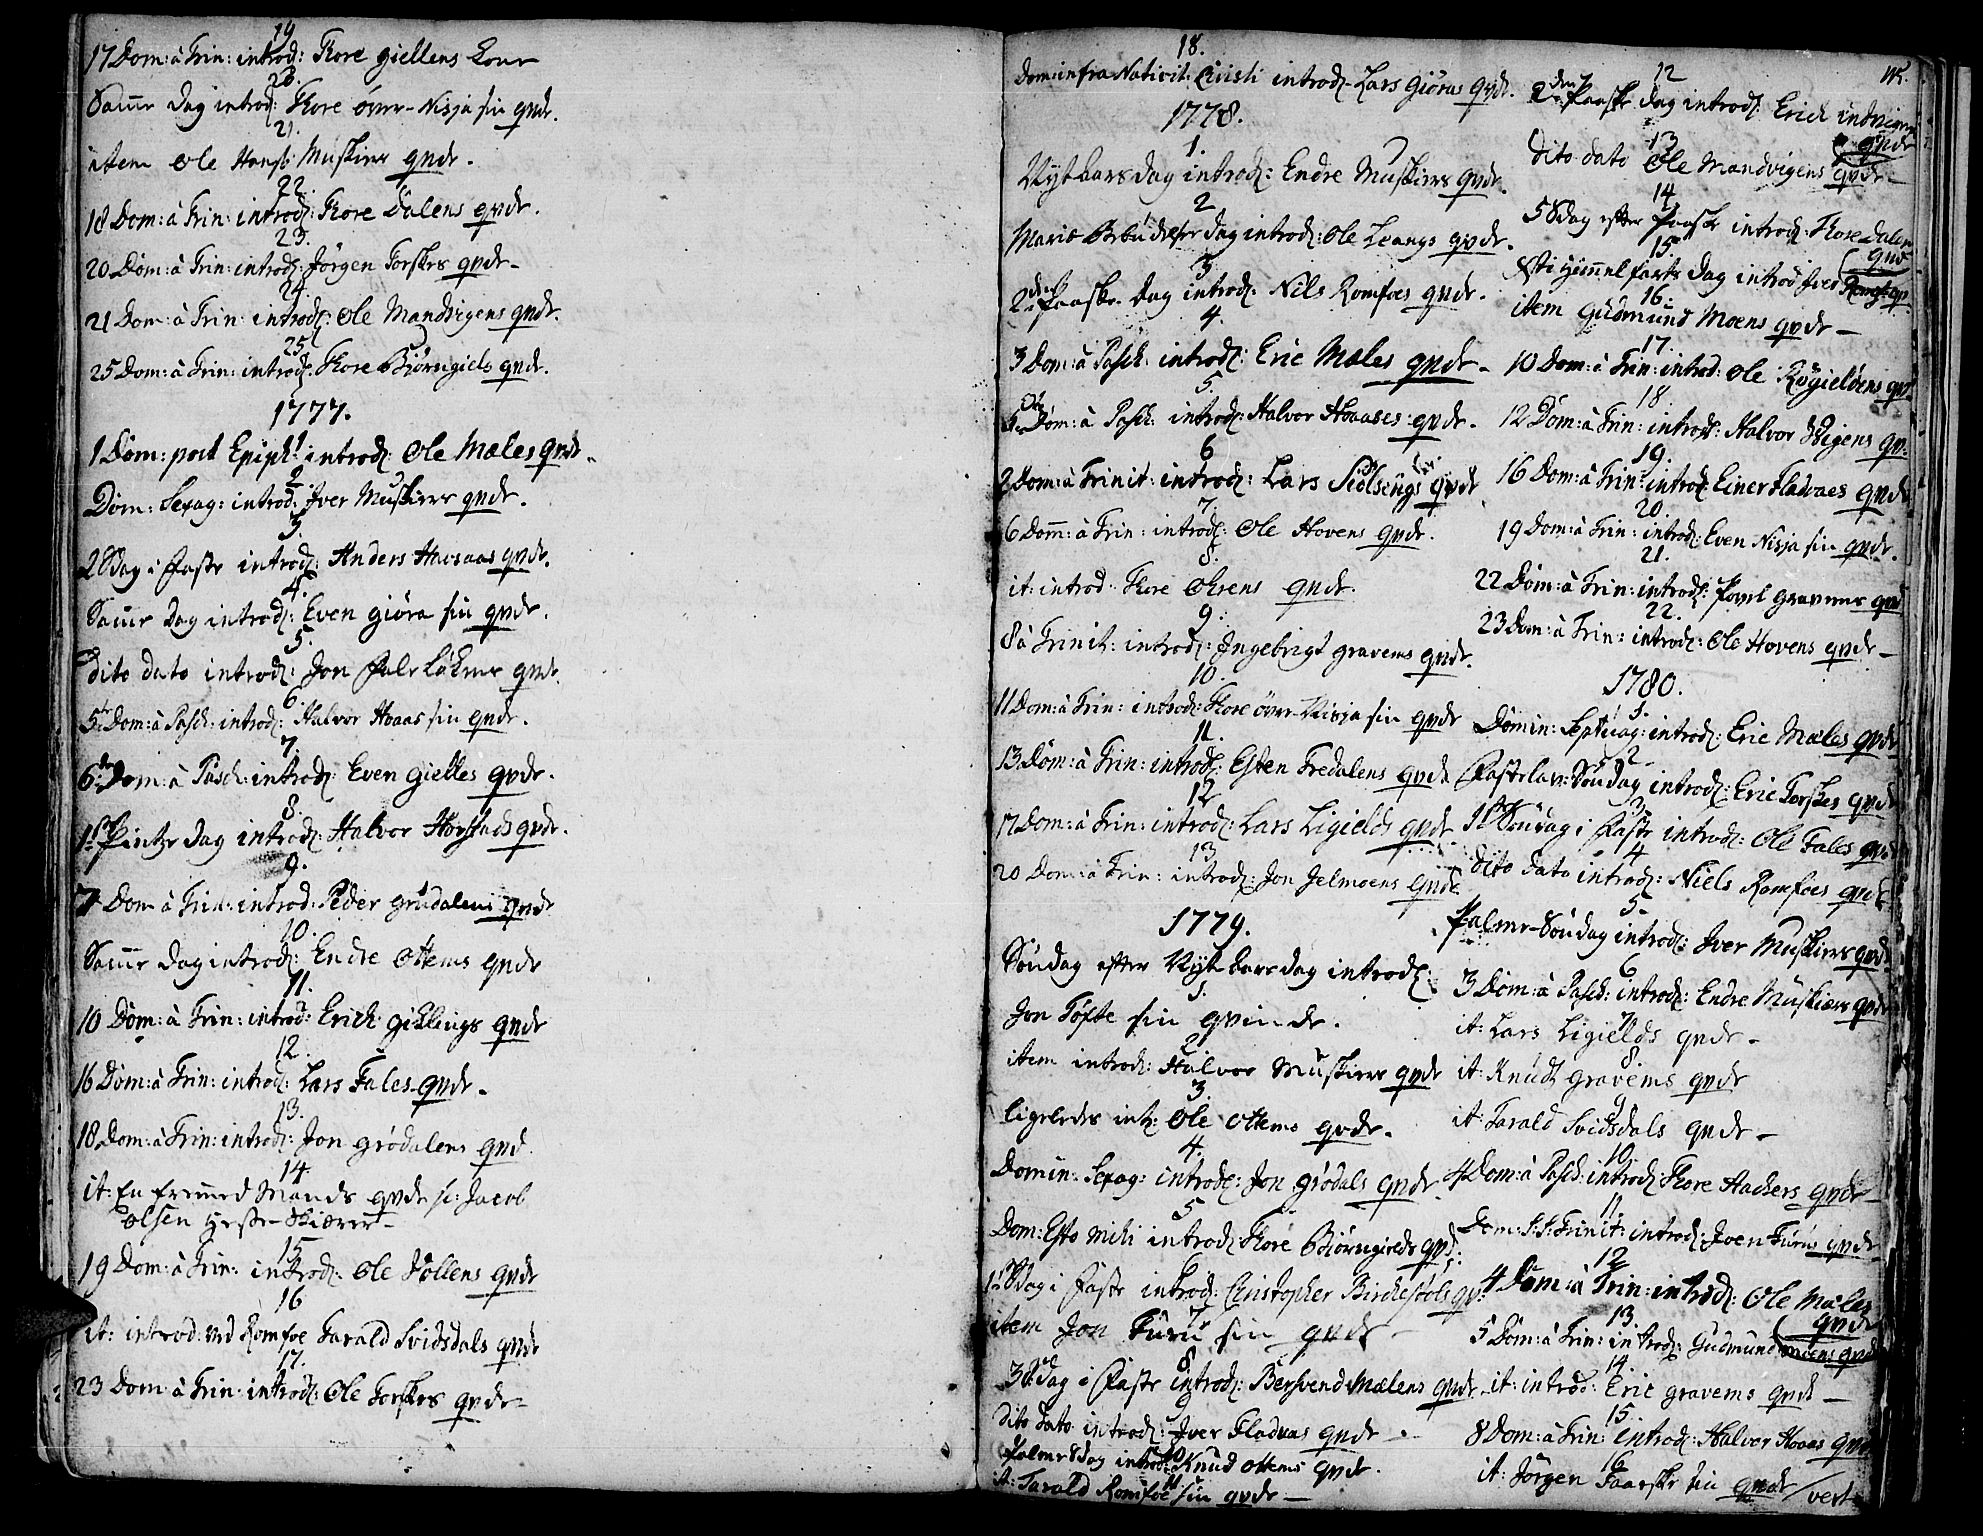 19
17 Dom: à Trin: introd: Tore giellens Kone
20.
Samme Dag introd: Tore øvre-Nisja sin qvde.
21.
item Ole Hans: Muskiers qvde.
22.
18 Dom: à Trin: introd: Tore Dalens qvde.
23.
20 Dom: à Trin: introd: Jörgen Torskes qvde-
24.
21 Dom: à Trin: introd: Ole Mandvigens qvde.
25.
25 Dom: à Trin: introd: Tore Biörngiels qvde.
1777.
1
1 Dom: post Epiph: introd: Ole Mæles qvde.
2
Dom: Sexag: introd: Iver Muskiers qvde.
3.
2 Sdag i Faste introd: Anders Havsaas qvde.
4.
Samme Dag introd: Even giöra sin qvde.
5.
dito dato introd: Jon Løkens qvde.
6.
5te Dom: à Pasch: introd: Halvor Hoaas sin qvde.
7.
6te Dom à Pasch: introd: Even gielles qvde.
8.
1ste Pintze dag introd: Halvor Horstads qvde.
9.
7 Dom à Trin: introd: Peder grødalens qvde
10.
Samme dag introd: Endre Ottems qvde
11.
10 Dom: à Trin: introd: Erich giklings qvde
12.
16 Dom: à Trin: introd: Lars Fales qvde.
13.
18 Dom: à Trin: introd: Jon grödalens qvd
14.
it: En fremmed Mands qvde sc: Jacob
Olsen Heste-Skierer-
15
19 Dom: à Trin: introd: Ole Föllens qvde
16
it: introd: ved Romfoe Tarald Svidsdals qvde
17.
23 Dom: à Trin: introd: Ole Torskes qvde-
18.
Dom: infra Nativit: Christi introd: Lars Giöras qvde.
1778.
1.
Nytaars dag introd: Endre Muskiers qvde.
2
Mariæ Bebudelses dag introd: Ole Leangs qvde.
3
2den Paaske dag introd: Nils Romfoes qvde.
4.
3 Dom: à Pasch: introd: Eric Mæles qvde-
5
4de Dom: à Pasch: introd: Halvor Hoaases qvde.
6
2 Dom: à Trinit: introd: Lars Siölsengs qvde
7.
6 Dom: à Trin: introd: Ole Hovens qvde.
8.
it: introd Tore Ohrens qvde.
9.
8 à Trinit: introd: Ingebrigt gravems qvde.
10.
11 Dom: à Trin: introd: Tore övre-Nisja sin qvde
11.
13 Dom: à Trin: introd: Esten Fredalens qvde
12
17 Dom: à Trin: introd: Lars Ligields qvde
13
20 Dom: à Trin: introd: Jon Jelmoens qvde
1779.
Söndag efter Nytaarsdag introd:
1.
Jon Töfte sin qvinde.
2
item introd: Halvor Muskiers qvde
3.
ligeledes int: Ole Ottems qvde.
4.
Domin: Sexag: introd: Jon grödals qvde.
5
Dom: Esto mihi introd: Tore Biörngields qvd:
6
1ste Sdag i Faste introd: Christopher Birchestöls qv:
7
item Jon Furu sin qvde-
8
3de Sdag i Faste introd: Bersvend Mælens qvde-
9
dito dato introd: Iver Fladvas qvde-
10
Palme Sdag introd: Knud Ottems qvde.
11
it: Tarald Romfoe sin qvde-
115.
12
2den Paaske dag introd: Erich
qvde
13
dito dato Ole Mandvigens qvde-
14
5 Sdag efter Paaske introd: Tore Dalens
qvd
15
Xsti Himmelfarts Dag introd Iver Romf: qv:
16.
item Gudmund Moens qvde-
17.
10 Dom: à Trin: introd: Ole Röygielöens qv
18.
12 Dom: à Trin: introd: Halvor Vigens qv:
19.
16 Dom: à Trin: introd: Einer Fladvaes qvde
20.
19 Dom: à Trin: introd: Even Nisja sin qvde.
21.
22 Dom: à Trin: introd: Povel gravems qvd
22.
23 Dom: à Trin: introd: Ole Hovens qvde-
1780.
1.
Domin: Septuag: introd: Eric Mæles qvde
2
Fastelav: Söndag introd: Eric Torskes qvde
3
1ste Söndag i Faste introd: Ole Fales qvde
4
dito dato introd: Niels Romfoes qvde
5.
Palme-Söndag introd: Iver Muskiers qvde
6
3 Dom: à Pasch: introd: Endre Muskiers qvde
7
it: Lars Ligields qvde-
8.
it: Knud gravems qvde
9
it: Tarald Svidsdals qvde-
10.
4 Dom: à Pasch: introd: Tore Hackers qvde-
11
Dom: S:S: Trinit: introd: Joen Furus qvde
12
4 Dom: à Trin: introd: Ole Mæles
qvde
13.
5 Dom: à Trin: introd: Gudmund Moens qvde
14.
it: introd: Eric gravems qvde-
15.
8 Dom: à Trin: introd: Halvor Hoaas qvde
16
it: Jörgen Faarske sin qvde /vert-